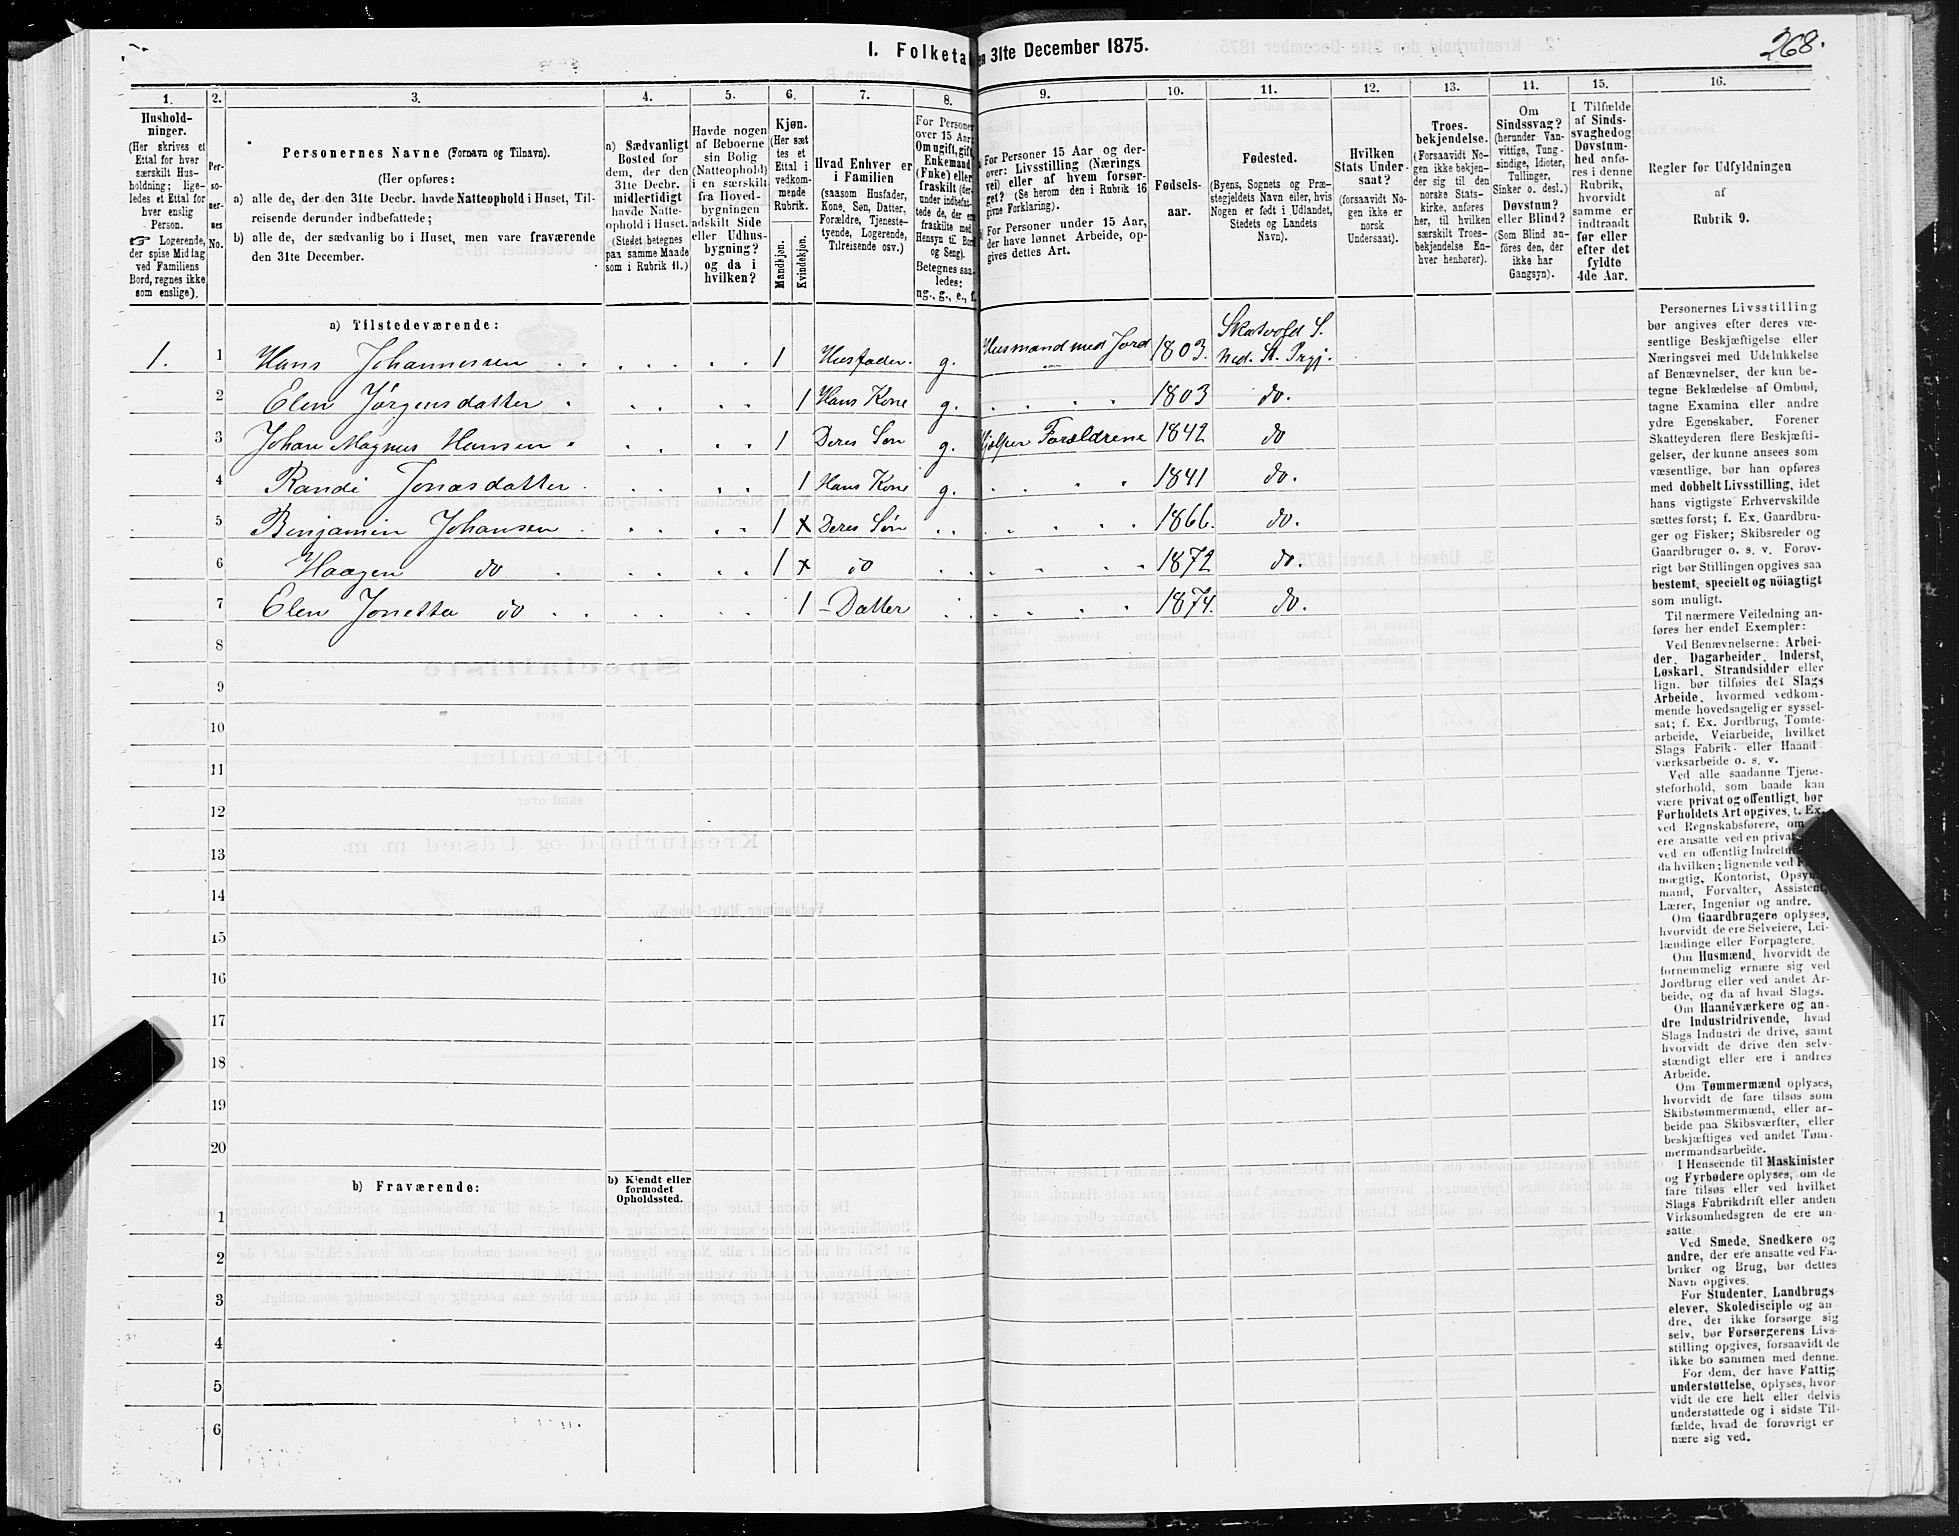 268.
1. Folketal
en 31te December 1875.
1.
Hushold-
ninger.
(Her skrives et
Ettal for hver
særskilt Hus-
holdning; lige-
ledes et Ettal for
hver enslig
Person.
☞ Logerende,
der spise Midlag
ved Familiens
Bord, regnes ikke
som enslige).
2.
Per-
so-
ner-
nes
No.
3.
Personernes Navne (Fornavn og Tilnavn).
(Her opføres:
a) alle de, der den 31te Decbr. havde Natteophold i Huset, Til-
reisende derunder indbefattede;
b) alle de, der sædvanlig bo i Huset, men vare fraværende
den 31te December.
4.
a) Sædvanligt
Bosted for
dem, der den
31te Decbr.
midlertidigt
havde Natte-
ophold i Huset.
(Stedet betegnes
paa samme Maade
som i Rubrik 11.)
5.
Havde nogen
af Beboerne
sin Bolig
(Natteophold)
i en særskilt
fra Hoved-
bygningen
adskilt Side
eller Udhus-
bygning?
og da i
hvilken?
6.
Kjøn.
(Her sæt
tes et
Ettal i
vedkom-
mende
Rubrik.
Mandkjøn.
Kvindekjøn.
7.
Hvad Enhver er
i Familien
(saasom Husfader,
Kone, Søn, Datter,
Forældre, Tjeneste-
tyende, Logerende,
Tilreisende osv.)
8.
For Personer
over 15 Aar
Om ugift, gift,
Enkemand
(Enke) eller
fraskilt (der-
under indbefat-
tede de, der er
fraskilte med
Hensyn til Bord
og Seng).
Betegnes saa-
ledes:
ug., g., e., f.
9.
For Personer 15 Aar og der-
over: Livsstilling (Nærings
vei) eller af hvem forsør-
get? (Se herom den i Rubrik 16
givne Forklaring).
For Personer under 15 Aar,
der have lønnet Arbeide, op-
gives dettes Art.
10.
Fødsels-
aar.
11.
Fødested.
(Byens, Sognets og Præ-
stegjeldets Navn eller, hvis
Nogen er født i Udlandet,
Stedets og Landets
Navn).
12.
Hvilken
Stats Under-
saat?
(forsaavidt No-
gen ikke er
norsk
Undersaat).
13.
Troes-
bekjendelse.
(Forsaavidt No-
gen ikke bekjen-
der sig til den
norske Stats-
kirke, anføres
her, til hvilken
særskilt Troes-
bekjendelse En-
hver henhører).
14.
Om
Sindssvag?
(herunder Van-
vittige, Tung-
sindige, Idioter,
Tullinger,
Sinker o. desl.)
Døvstum?
eller Blind?
(Som Blind an-
føres den, der
ikke har
Gangsyn).
15.
I Tilfælde
af Sinds-
svaghed og
Døvstum-
hed anfø-
res i denne
Rubrik,
hvorvidt
samme er
indtraadt
før eller
efter det
fyldte
4de Aar.
16.
Regler for Udfyldningen
af
Rubrik 9.
a) Tilstedeværende:
1. 1 Hans Johannessen 1 Husfader. g. Husmand med Jord 1803. Skatvold S. Ned. St. Prgj.
2 Elen Jørgensdatter 1 Hans Kone g. 1803 do.
3 Johan Magnus Hansen 1 Deres Søn g. Hjelper Forældrene 1842 do
4 Randi Jonasdatter 1 Hans Kone g. 1841 do.
5 Benjamin Johansen 1 x Deres Søn 1866. do.
6 Haagen do 1 x do 1872 do.
7 Elen Jonetta do 1 - Datter 1874. do.
8
9
10
11
12
13
14
15
16
17
18
19
20
b) Fraværende:
b) Kjendt eller
formodet
Opholdssted.
1
2
3
4
5
6
Personernes Livsstilling
bør angives efter deres væ-
sentlige Beskjæftigelse eller
Næringsvei med Udelukkelse
af Benævnelser, der kun be-
tegne Beklædelse af Ombud,
tagne Examina eller andre
ydre Egenskaber. Forener
Skatteyderen flere Beskjæfti-
gelser, der kunne ansees som
væsentlige, bør han opføres
med dobbelt Livsstilling, idet
hans vigtigste Erhvervskilde
sættes først; f. Ex. Gaardbru-
ger og Fisker; Skibsreder og
Gaardbruger o. s. v. Forøv-
rigt bør Stillingen opgives saa
bestemt, specielt og nöiagtigt
som muligt.
Til nærmere Veiledning an-
føres her endel Exempler:
Ved Benævnelserne: Arbei-
der, Dagarbeider, Inderst,
Løskarl, Strandsidder eller
lign. bør tilføies det Slags
Arbeide, hvormed vedkom-
mende hovedsagelig er syssel-
sat; f. Ex. Jordbrug, Tomte-
arbeide, Veiarbeide, hvilket
Slags Fabrik- eller Haand
værksarbeide o. s. v.
Ved alle saadanne Tjene-
steforhold, som baade kan
være privat og offentligt, bør
Forholdets Art opgives, t. Ex.
ved Regnskabsførere, om
ere ansatte ved en privat
ved en offentlig Indretn
da hvilken; lignende ved F
mægtig, Kontorist, Opsyns
mand, Forvalter, Assistent,
Lærer, Ingeniør og andre.
Om Gaardbrugere oplyses,
hvorvidt de ere Selveiere, Lei-
lændinge eller Forpagtere.
Om Husmænd, hvorvidt de
fornemmelig ernære sig ved
Jordbrug eller ved andet Ar-
beide, og da af hvad Slags.
Om Haandværkere og an-
dre Industridrivende, hvad
Slags Industri de drive, samt
hvorvidt de drive den selv-
stændigt eller ere i andres
Arbeide.
Om Tømmermænd oplyses,
hvorvidt de fare tilsøs som
Skibstømmermænd, eller ar-
beide paa Skibsværfter, eller
beskjæftiges ved andet Tøm-
mermandsarbeide.
I Henseende til Maskinister
og Fyrbødere oplyses, om de
fare tilsøs eller ved hvilket
Slags Fabrikdrift eller anden
Virksomhedsgren de ere an-
satte.
Ved Smede, Snedkere og
andre, der ere ansatte ved Fa-
briker og Brug, bør dettes
Navn opgives.
For Studenter, Landbrugs
elever, Skoledisciple og an-
dre, der ikke forsørge sig
selv, bør Forsørgerens Livs-
stilling opgives, forsaavidt de
ikke bo sammen med denne.
For dem, der have Fattig-
understøttelse, oplyses, hvor-
vidt de ere helt eller delvis
understøttede og i sidste Til-
fælde, hvad de forøvrigt er
nære sig ved.